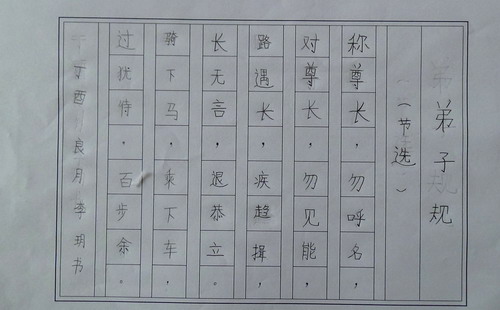 弟子规
（节选）
称尊长，勿呼名，
对尊长，勿见能，
路遇长，疾趋揖，
长无言，退恭立。
骑下马，乘下车，
过犹待，百步余。
丁酉良月李玥书